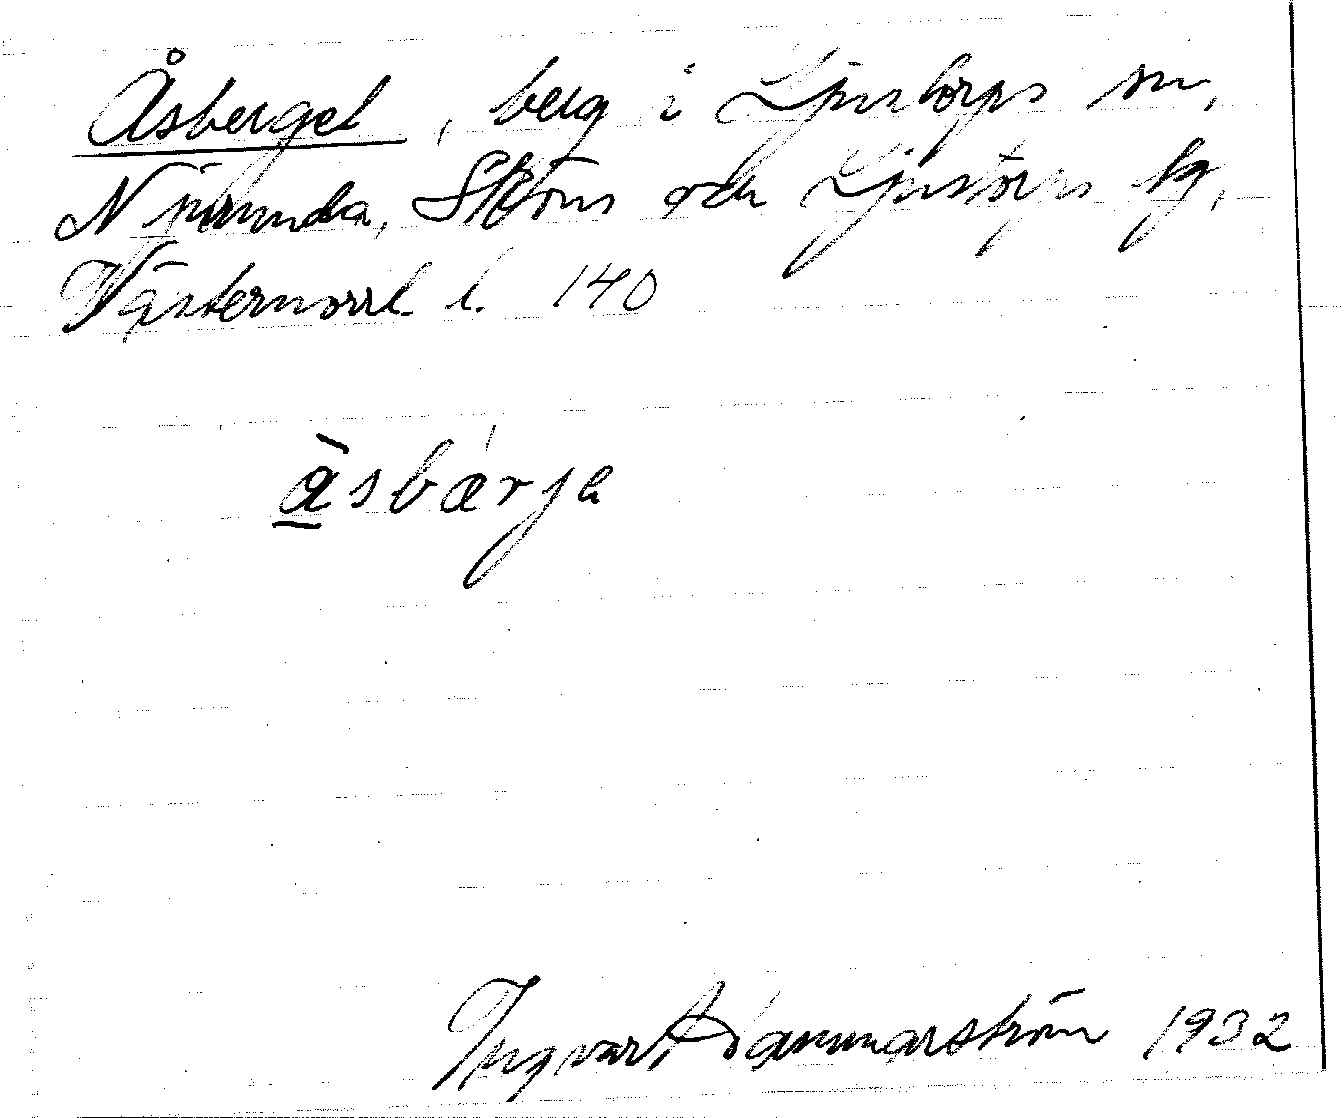 Åsberget, berg i Ljustorps sn,
Njurunda, Sköns och Ljustorps tg,
Västernorrl. l. 140
å̱̀sbær'ja
Ingvar Hammarström 1932